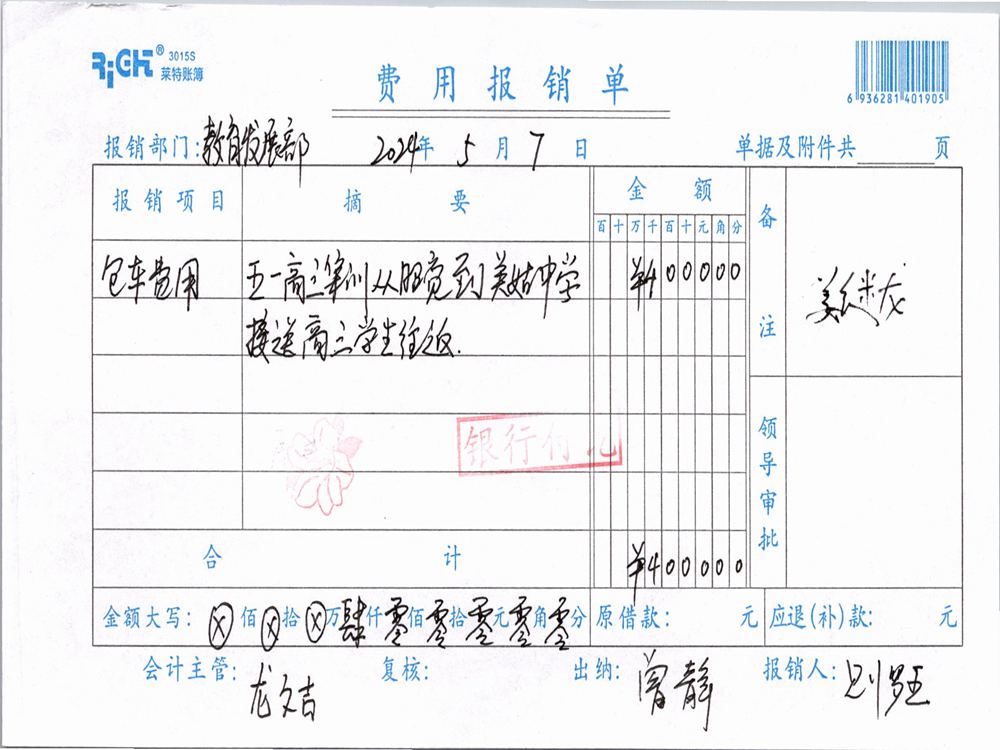 RiGHT® 3015S
莱特账簿
费用报销单
6 936281 401905
报销部门:教育发展部 2024年 5月 7日 单据及附件共 页
报销项目 摘要 金额 备注
百十万千百十元角分
包车费用 五一高三集训从昭觉到美姑中学 ¥400000
接送高三学生往返.
银行付讫
领导审批
合计 ¥400000
金额大写: ⊗佰⊗拾⊗万肆仟零佰零拾零元零角零分 原借款: 元 应退(补)款: 元
会计主管: 龙文吉 复核: 出纳: 曾静 报销人: